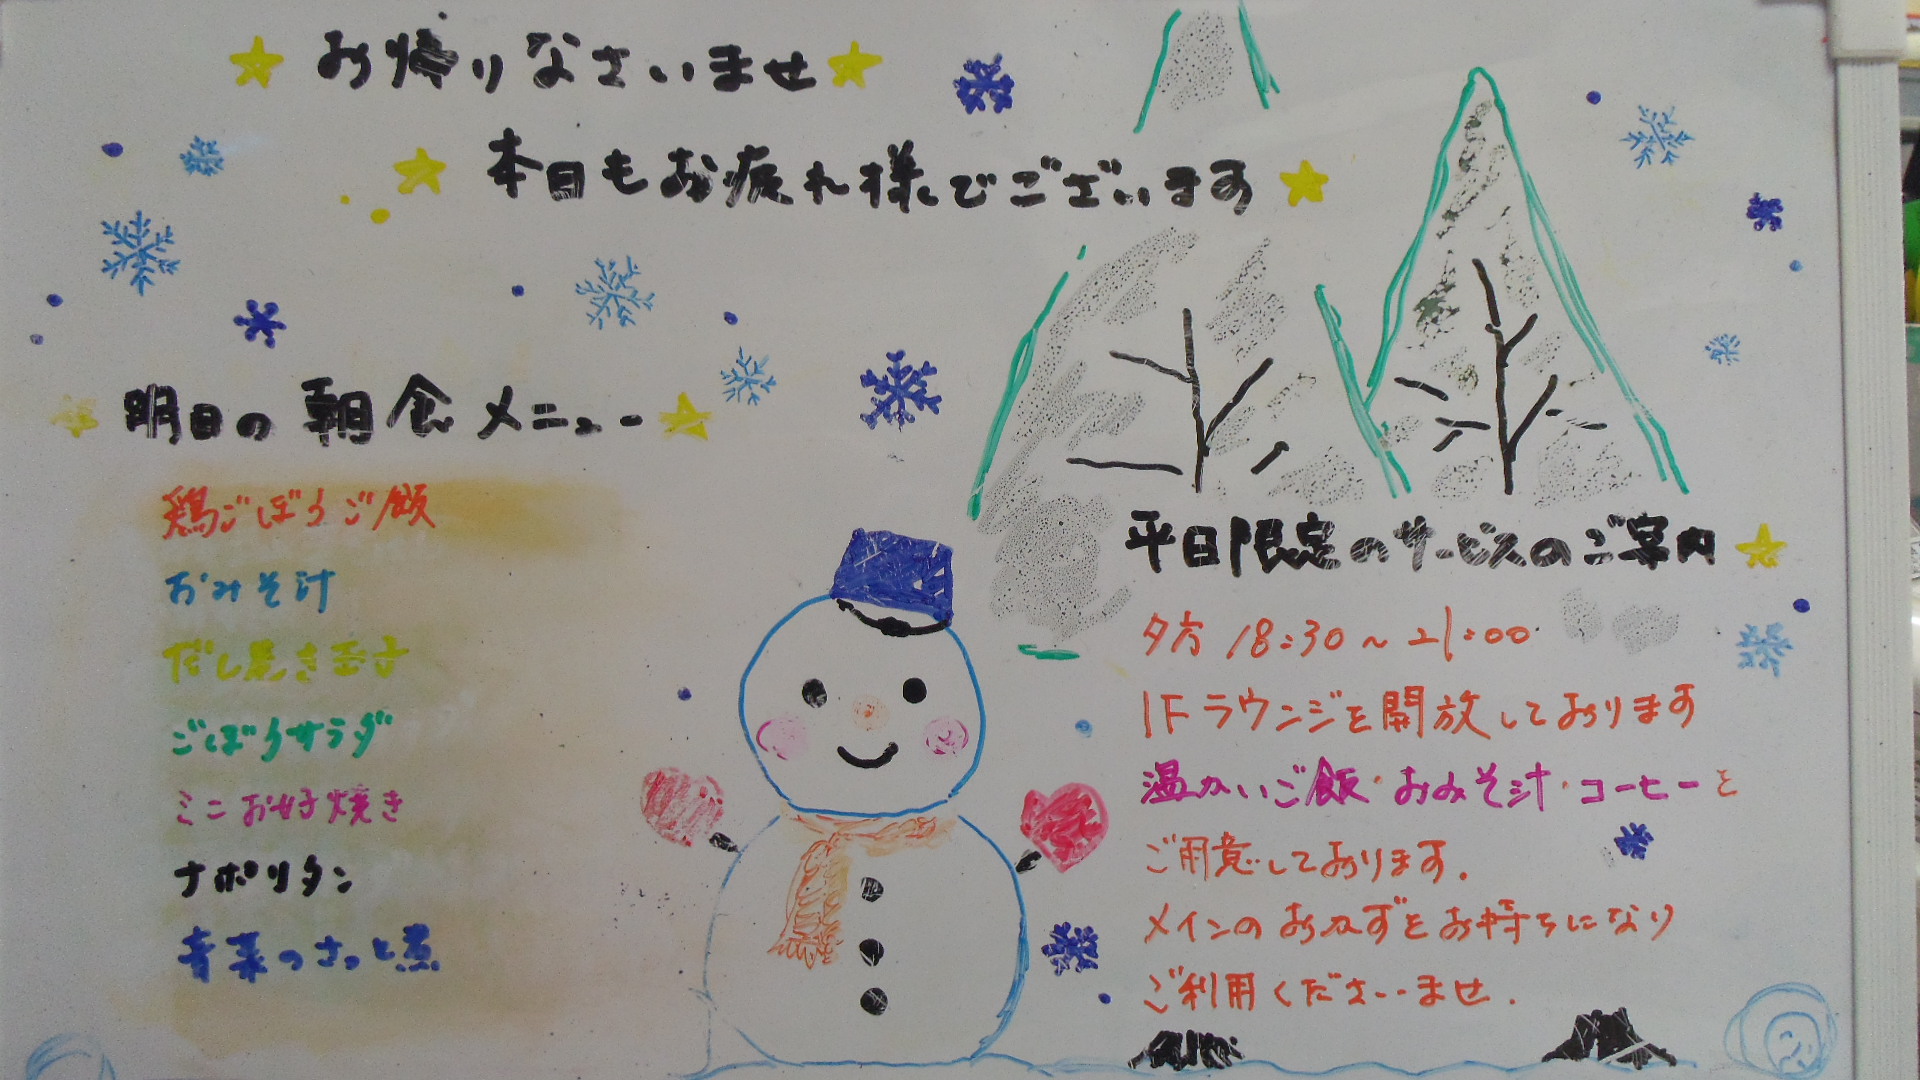 お帰りなさいませ
本日もお疲れ様でございます
明日の朝食メニュー
鶏ごぼうご飯
おみそ汁
だし巻き玉子
ごぼうサラダ
ミニお好み焼き
ナポリタン
青菜のさっと煮
平日限定のサービスのご案内
夕方 18:30～21:00
1Fラウンジを開放しております
温かいご飯・おみそ汁・コーヒーを
ご用意しております.
メインのおかずをお持ちになり
ご利用くださいませ.